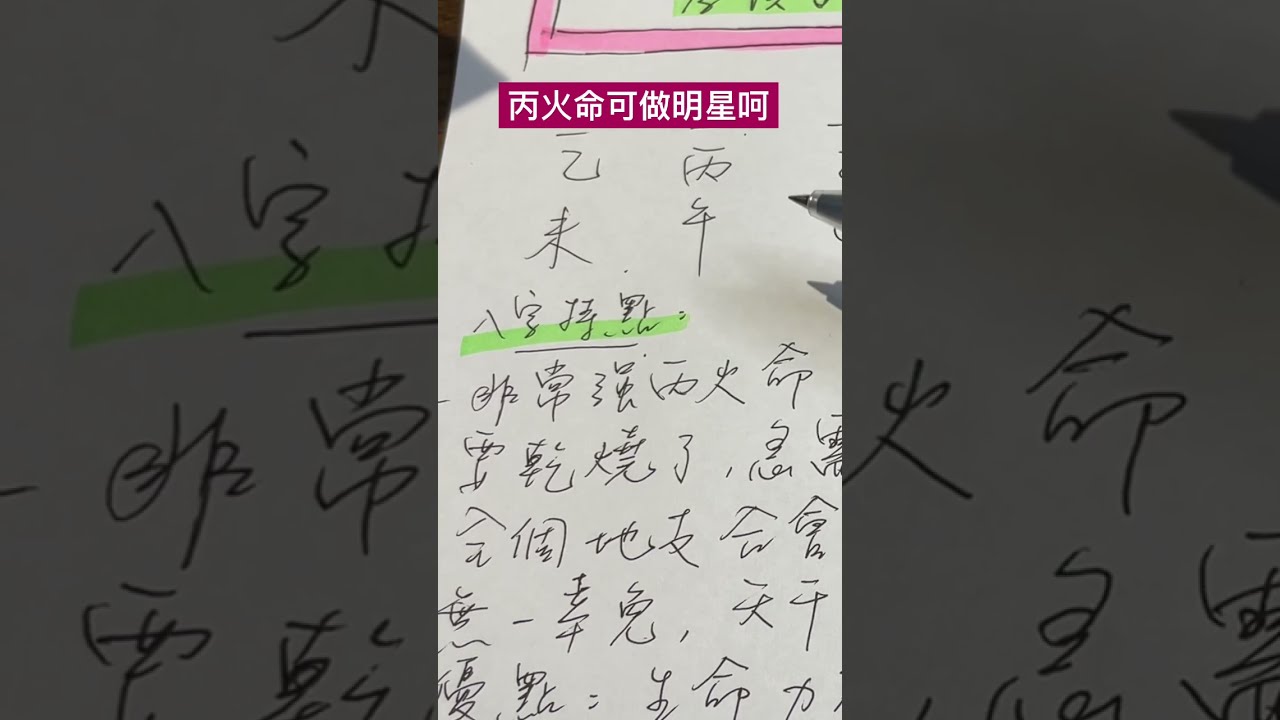 丙火命可做明星呵
乙 丙
未 午
八字特點：
-非常强丙火命
要乾燒了，急需
全個地支合會
無一幸免，天干
優點：生命力